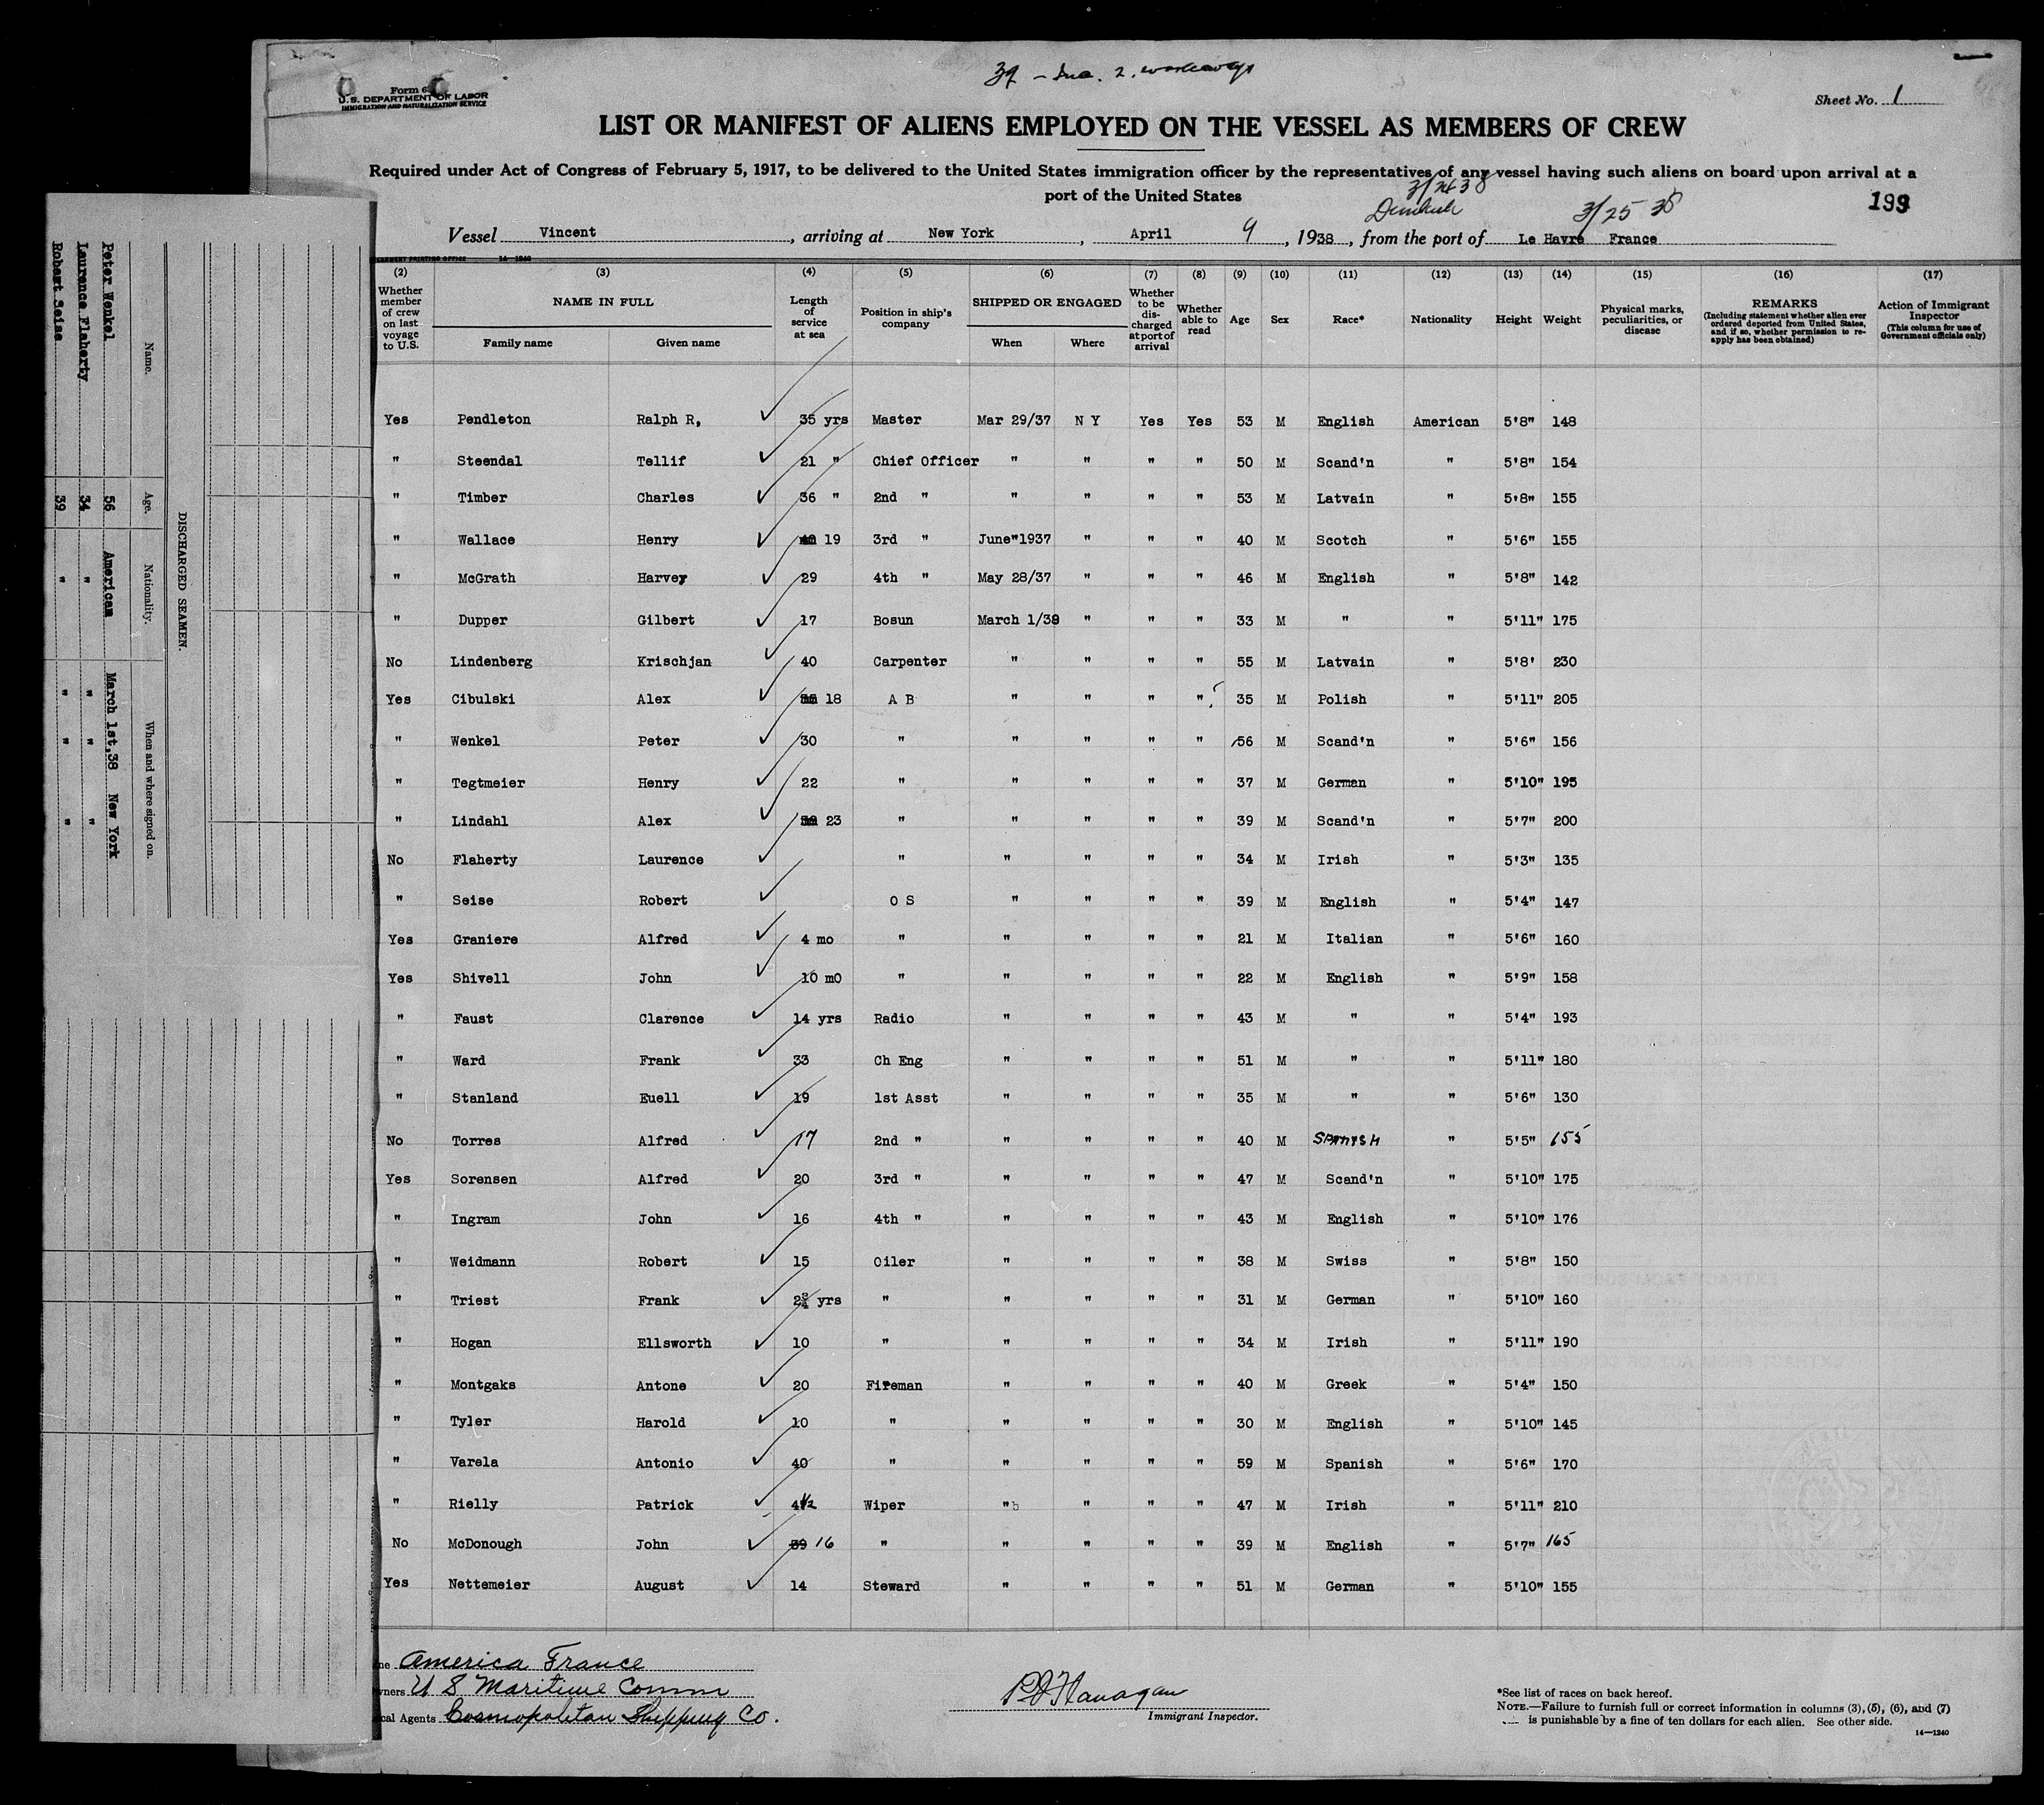 39 - Inc. 2. workaways
Form 6
U.S. DEPARTMENT OF LABOR
IMMIGRATION AND NATURALIZATION SERVICE
Sheet No. 1
LIST OR MANIFEST OF ALIENS EMPLOYED ON THE VESSEL AS MEMBERS OF CREW
Required under Act of Congress of February 5, 1917, to be delivered to the United States immigration officer by the representatives of any vessel having such aliens on board upon arrival at a
port of the United States
3/24 38
Dunkirk 3/25 38
199
Vessel Vincent, arriving at New York, April 9, 1938, from the port of Le Havre France
(2) (3) (4) (5) (6) (7) (8) (9) (10) (11) (12) (13) (14) (15) (16) (17)
Whether member of crew on last voyage to U.S.
NAME IN FULL
Family name Given name
Length of service at sea
Position in ship's company
SHIPPED OR ENGAGED
When Where
Whether to be discharged at port of arrival
Whether able to read
Age
Sex
Race*
Nationality
Height
Weight
Physical marks, peculiarities, or disease
REMARKS
(Including statement whether alien ever ordered deported from United States, and if so, whether permission to reapply has been obtained)
Action of Immigrant Inspector
(This column for use of Government officials only)
Yes Pendleton Ralph R, 35 yrs Master Mar 29/37 N Y Yes Yes 53 M English American 5'8" 148
" Steendal Tellif 21 " Chief Officer " " " " 50 M Scand'n " 5'8" 154
" Timber Charles 36 " 2nd " " " " " 53 M Latvain " 5'8" 155
" Wallace Henry 19 3rd " June"1937 " " " 40 M Scotch " 5'6" 155
" McGrath Harvey 29 4th " May 28/37 " " " 46 M English " 5'8" 142
" Dupper Gilbert 17 Bosun March 1/38 " " " 33 M " " 5'11" 175
No Lindenberg Krischjan 40 Carpenter " " " " 55 M Latvain " 5'8' 230
Yes Cibulski Alex 18 A B " " " " 35 M Polish " 5'11" 205
" Wenkel Peter 30 " " " " " 56 M Scand'n " 5'6" 156
" Tegtmeier Henry 22 " " " " " 37 M German " 5'10" 195
" Lindahl Alex 23 " " " " " 39 M Scand'n " 5'7" 200
No Flaherty Laurence " " " " " 34 M Irish " 5'3" 135
" Seise Robert O S " " " " 39 M English " 5'4" 147
Yes Graniere Alfred 4 mo " " " " " 21 M Italian " 5'6" 160
Yes Shivell John 10 mO " " " " " 22 M English " 5'9" 158
" Faust Clarence 14 yrs Radio " " " " 43 M " " 5'4" 193
" Ward Frank 33 Ch Eng " " " " 51 M " " 5'11" 180
" Stanland Euell 19 1st Asst " " " " 35 M " " 5'6" 130
No Torres Alfred 17 2nd " " " " " 40 M SPANISH " 5'5" 155
Yes Sorensen Alfred 20 3rd " " " " " 47 M Scand'n " 5'10" 175
" Ingram John 16 4th " " " " " 43 M English " 5'10" 176
" Weidmann Robert 15 Oiler " " " " 38 M Swiss " 5'8" 150
" Triest Frank 2¾ yrs " " " " " 31 M German " 5'10" 160
" Hogan Ellsworth 10 " " " " " 34 M Irish " 5'11" 190
" Montgaks Antone 20 Fireman " " " " 40 M Greek " 5'4" 150
" Tyler Harold 10 " " " " " 30 M English " 5'10" 145
" Varela Antonio 40 " " " " " 59 M Spanish " 5'6" 170
" Rielly Patrick 4½ Wiper " " " " 47 M Irish " 5'11" 210
No McDonough John 39 16 " " " " " 39 M English " 5'7" 165
Yes Nettemeier August 14 Steward " " " " 51 M German " 5'10" 155
ne America France
wners U S Maritime Comm
cal Agents Cosmopolitan Shipping Co.
P J Flanagan
Immigrant Inspector.
*See list of races on back hereof.
NOTE.—Failure to furnish full or correct information in columns (3), (5), (6), and (7)
is punishable by a fine of ten dollars for each alien. See other side.
14—1240
DISCHARGED SEAMEN.
Name. Age. Nationality. When and where signed on.
Peter Wenkel 56 American March 1st,38 New York
Laurence Flaherty 34 " " " "
Robert Seise 39 " " " "